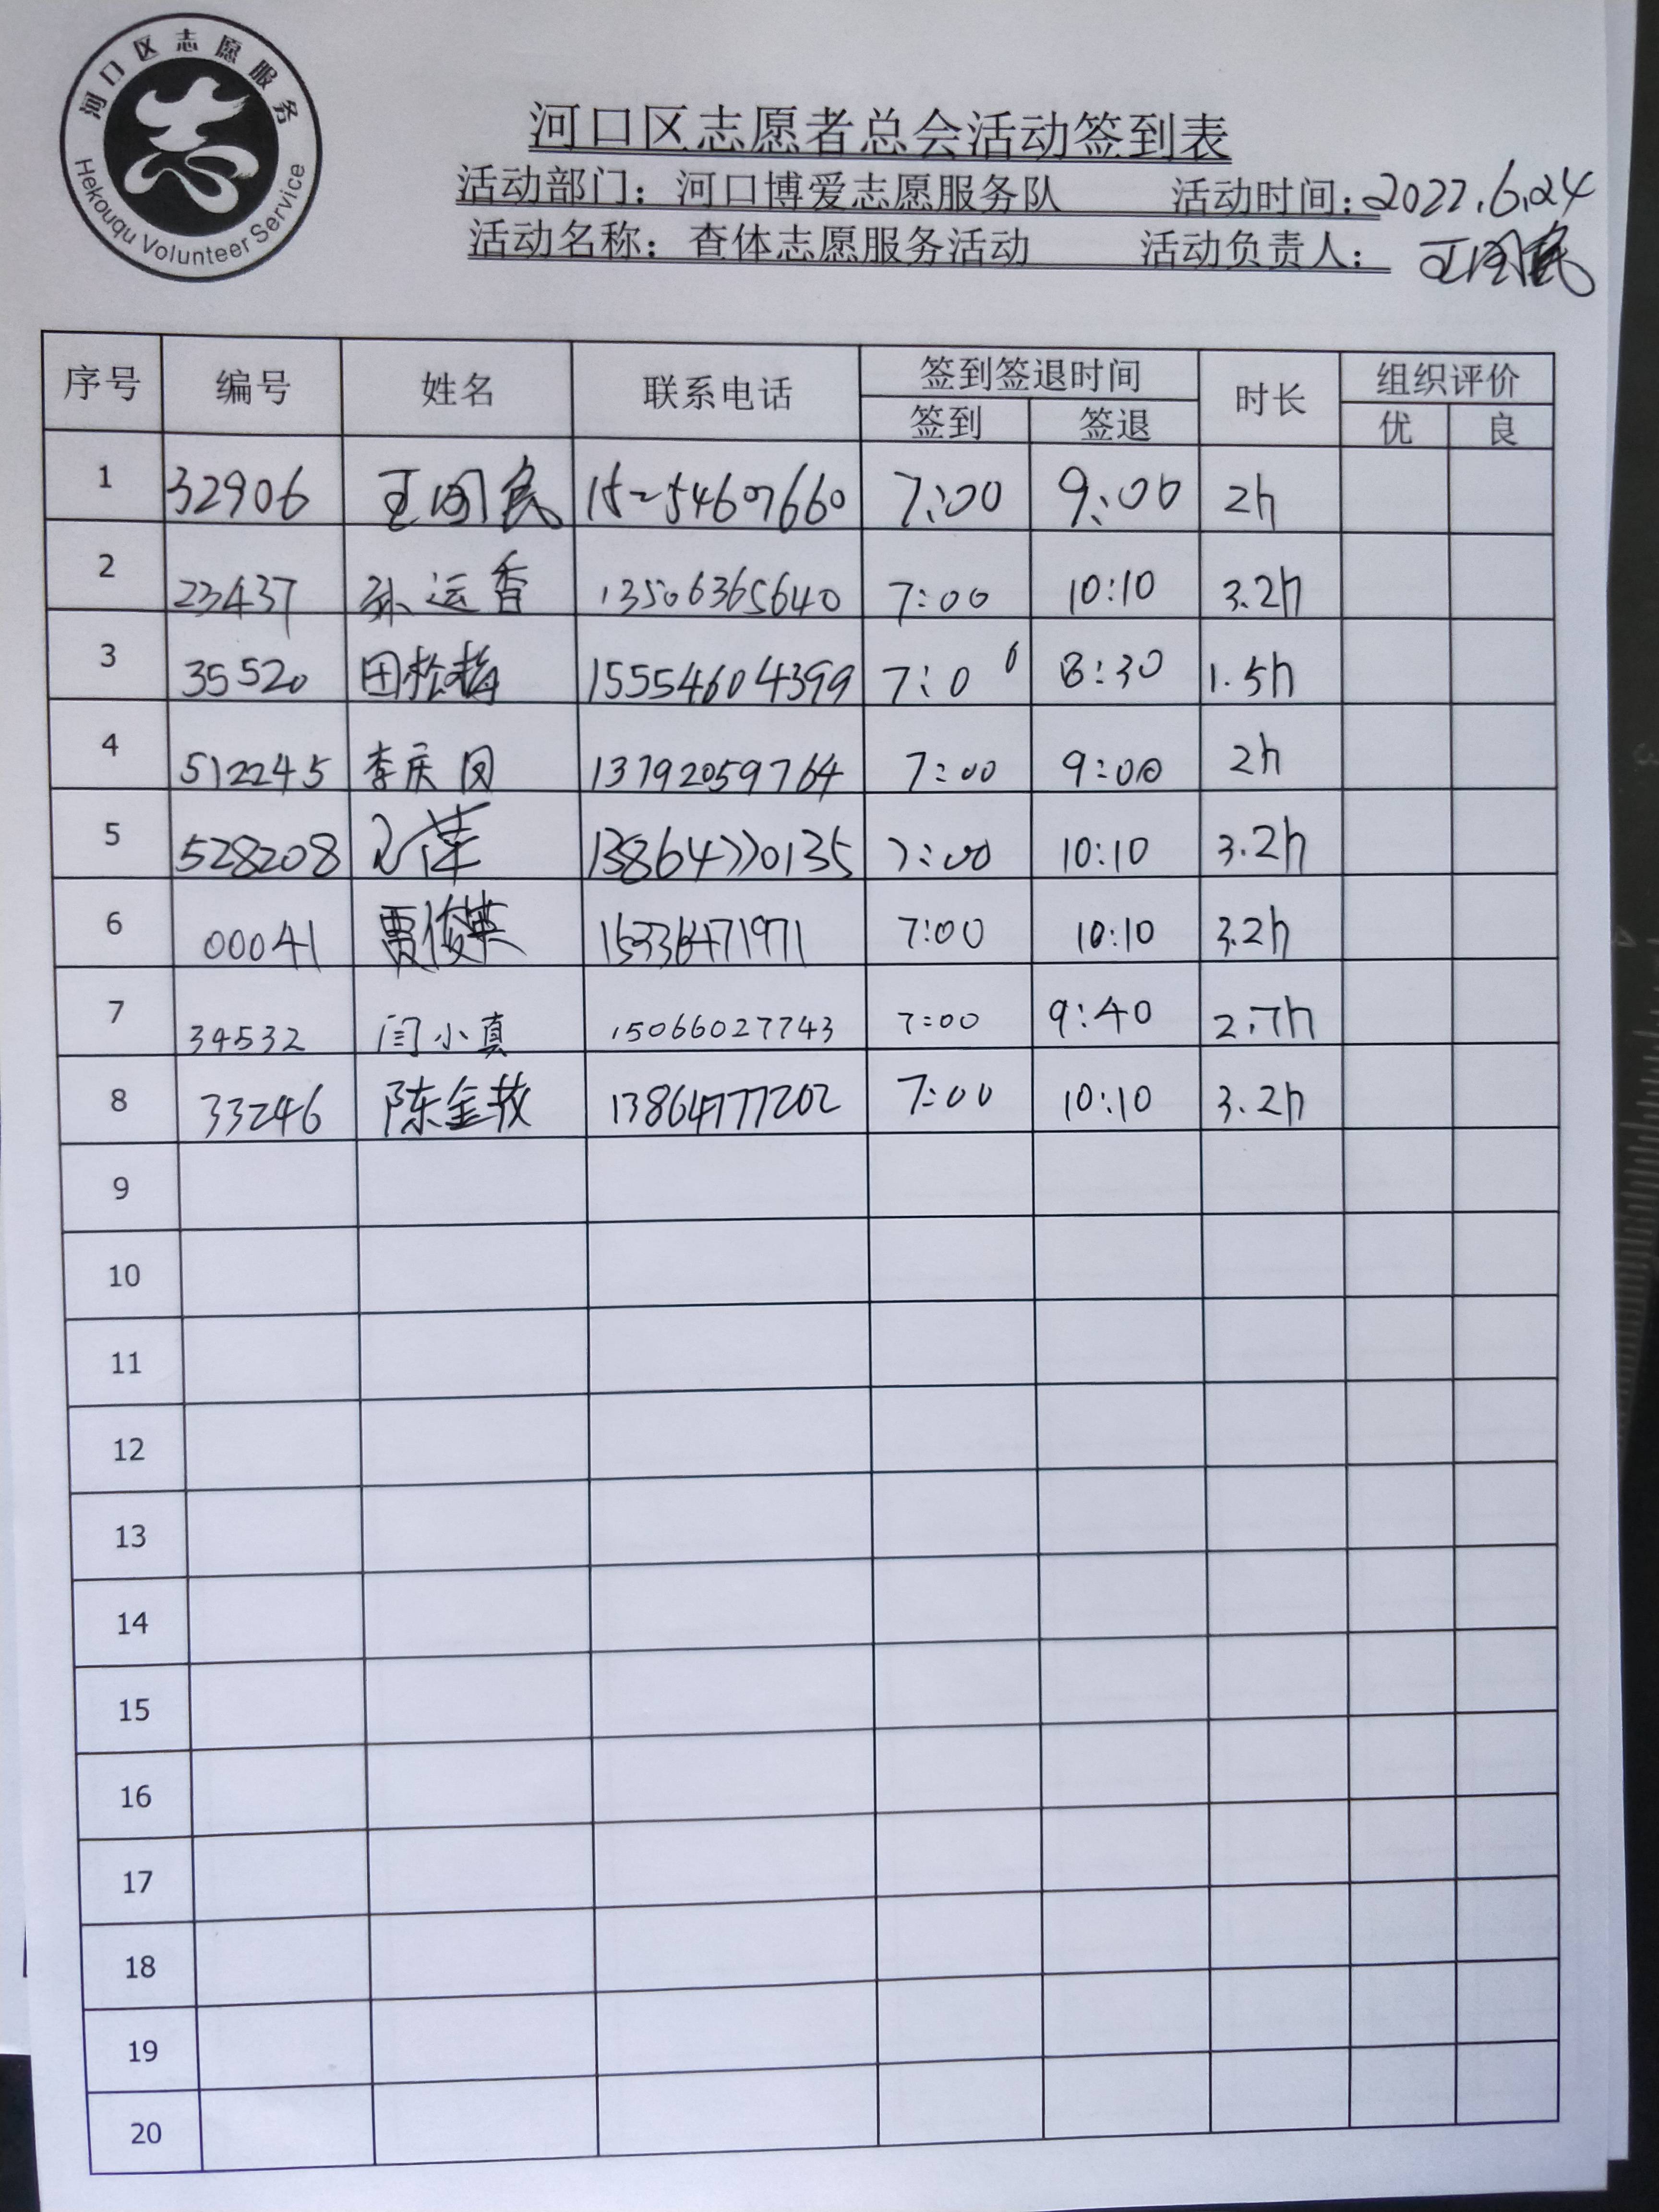 河口区志愿服务
Hekouqu Volunteer Service
河口区志愿者总会活动签到表
活动部门：河口博爱志愿服务队 活动时间：2022.6.24
活动名称：查体志愿服务活动 活动负责人：王国民
序号 编号 姓名 联系电话 签到签退时间 时长 组织评价
签到 签退 优 良
1 32906 王国民 15254607660 7:00 9:00 2h
2 23437 孙运香 13506365640 7:00 10:10 3.2h
3 35520 田松梅 15554604399 7:00 8:30 1.5h
4 512245 李庆凤 13792059764 7:00 9:00 2h
5 528208 13864770135 7:00 10:10 3.2h
6 00041 贾俊英 15336471971 7:00 10:10 3.2h
7 34532 闫小真 15066027743 7:00 9:40 2.7h
8 33246 陈金 13864777202 7:00 10:10 3.2h
9
10
11
12
13
14
15
16
17
18
19
20